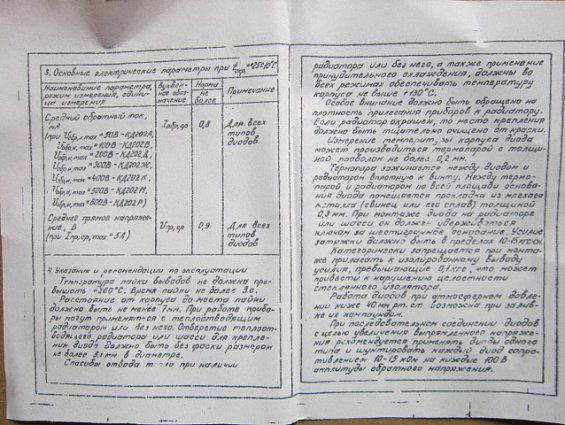 3. Основные электрические параметры при tокр.=25±10°С
Наименование параметра, режим измерения, единица измерения
Буквенное обозначение
Норма не более
Примечание
Средний обратный ток, мА
Iобр,ср
0,8
Для всех типов диодов
(при Uобр,и,max =50В -КД202А,
Uобр,и,max =100В -КД202В,
Uобр,и,max =200В -КД202Д,
Uобр,и,max =300В -КД202Ж,
Uобр,и,max =400В -КД202К,
Uобр,и,max =500В -КД202М,
Uобр,и,max =600В -КД202Р)
Среднее прямое напряжение, В
(при Iпр,ср,max = 5А)
Uпр,ср
0,9
Для всех типов диодов
4. Указания и рекомендации по эксплуатации
Температура пайки выводов не должна пре-
вышать +260°С. Время пайки не более 3с.
Расстояние от корпуса до места пайки
должно быть не менее 7мм. При работе прибо-
ры могут применяться с теплоотводящим
радиатором или без него. Отверстие теплоот-
водящего радиатора или шасси для крепле-
ния диода должно быть без фаски размером
не более 5,2мм в диаметре.
Способы отвода тепла при наличии
радиатора или без него, а также применение
принудительного охлаждения, должны во
всех режимах обеспечивать температуру
корпуса не выше +130°С.
Особое внимание должно быть обращено на
плотность прилегания приборов к радиатору.
Если радиатор окрашен, то место крепления
должно быть тщательно очищено от краски.
Измерение температуры корпуса диода
может производиться термопарой с толщи-
ной проволок не более 0,2мм.
Термопара зажимается между диодом и
радиатором вплотную к винту. Между термо-
парой и радиатором по всей площади основа-
ния диода помещается прокладка из мягкого
металла (свинец или его сплав) толщиной
0,3мм. При монтаже диода на радиаторе
или шасси он должен удерживаться
ключом за шестигранное основание. Усилие
затяжки должно быть в пределах
Категорически запрещается при монта-
же прилагать к изолированному выводу
усилия, превышающие 0,1кгс, что может
привести к нарушению целостности
стеклянного изолятора.
Работа диодов при атмосферном давле-
нии ниже 40мм рт. ст. возможна при залив-
ке их компаундом.
При последовательном соединении диодов
с целью увеличения выпрямленного напряже-
ния рекомендуется применять диоды одного
типа и шунтировать каждый диод сопро-
тивлением 10-15 кОм на каждые 100В
амплитуды обратного напряжения.